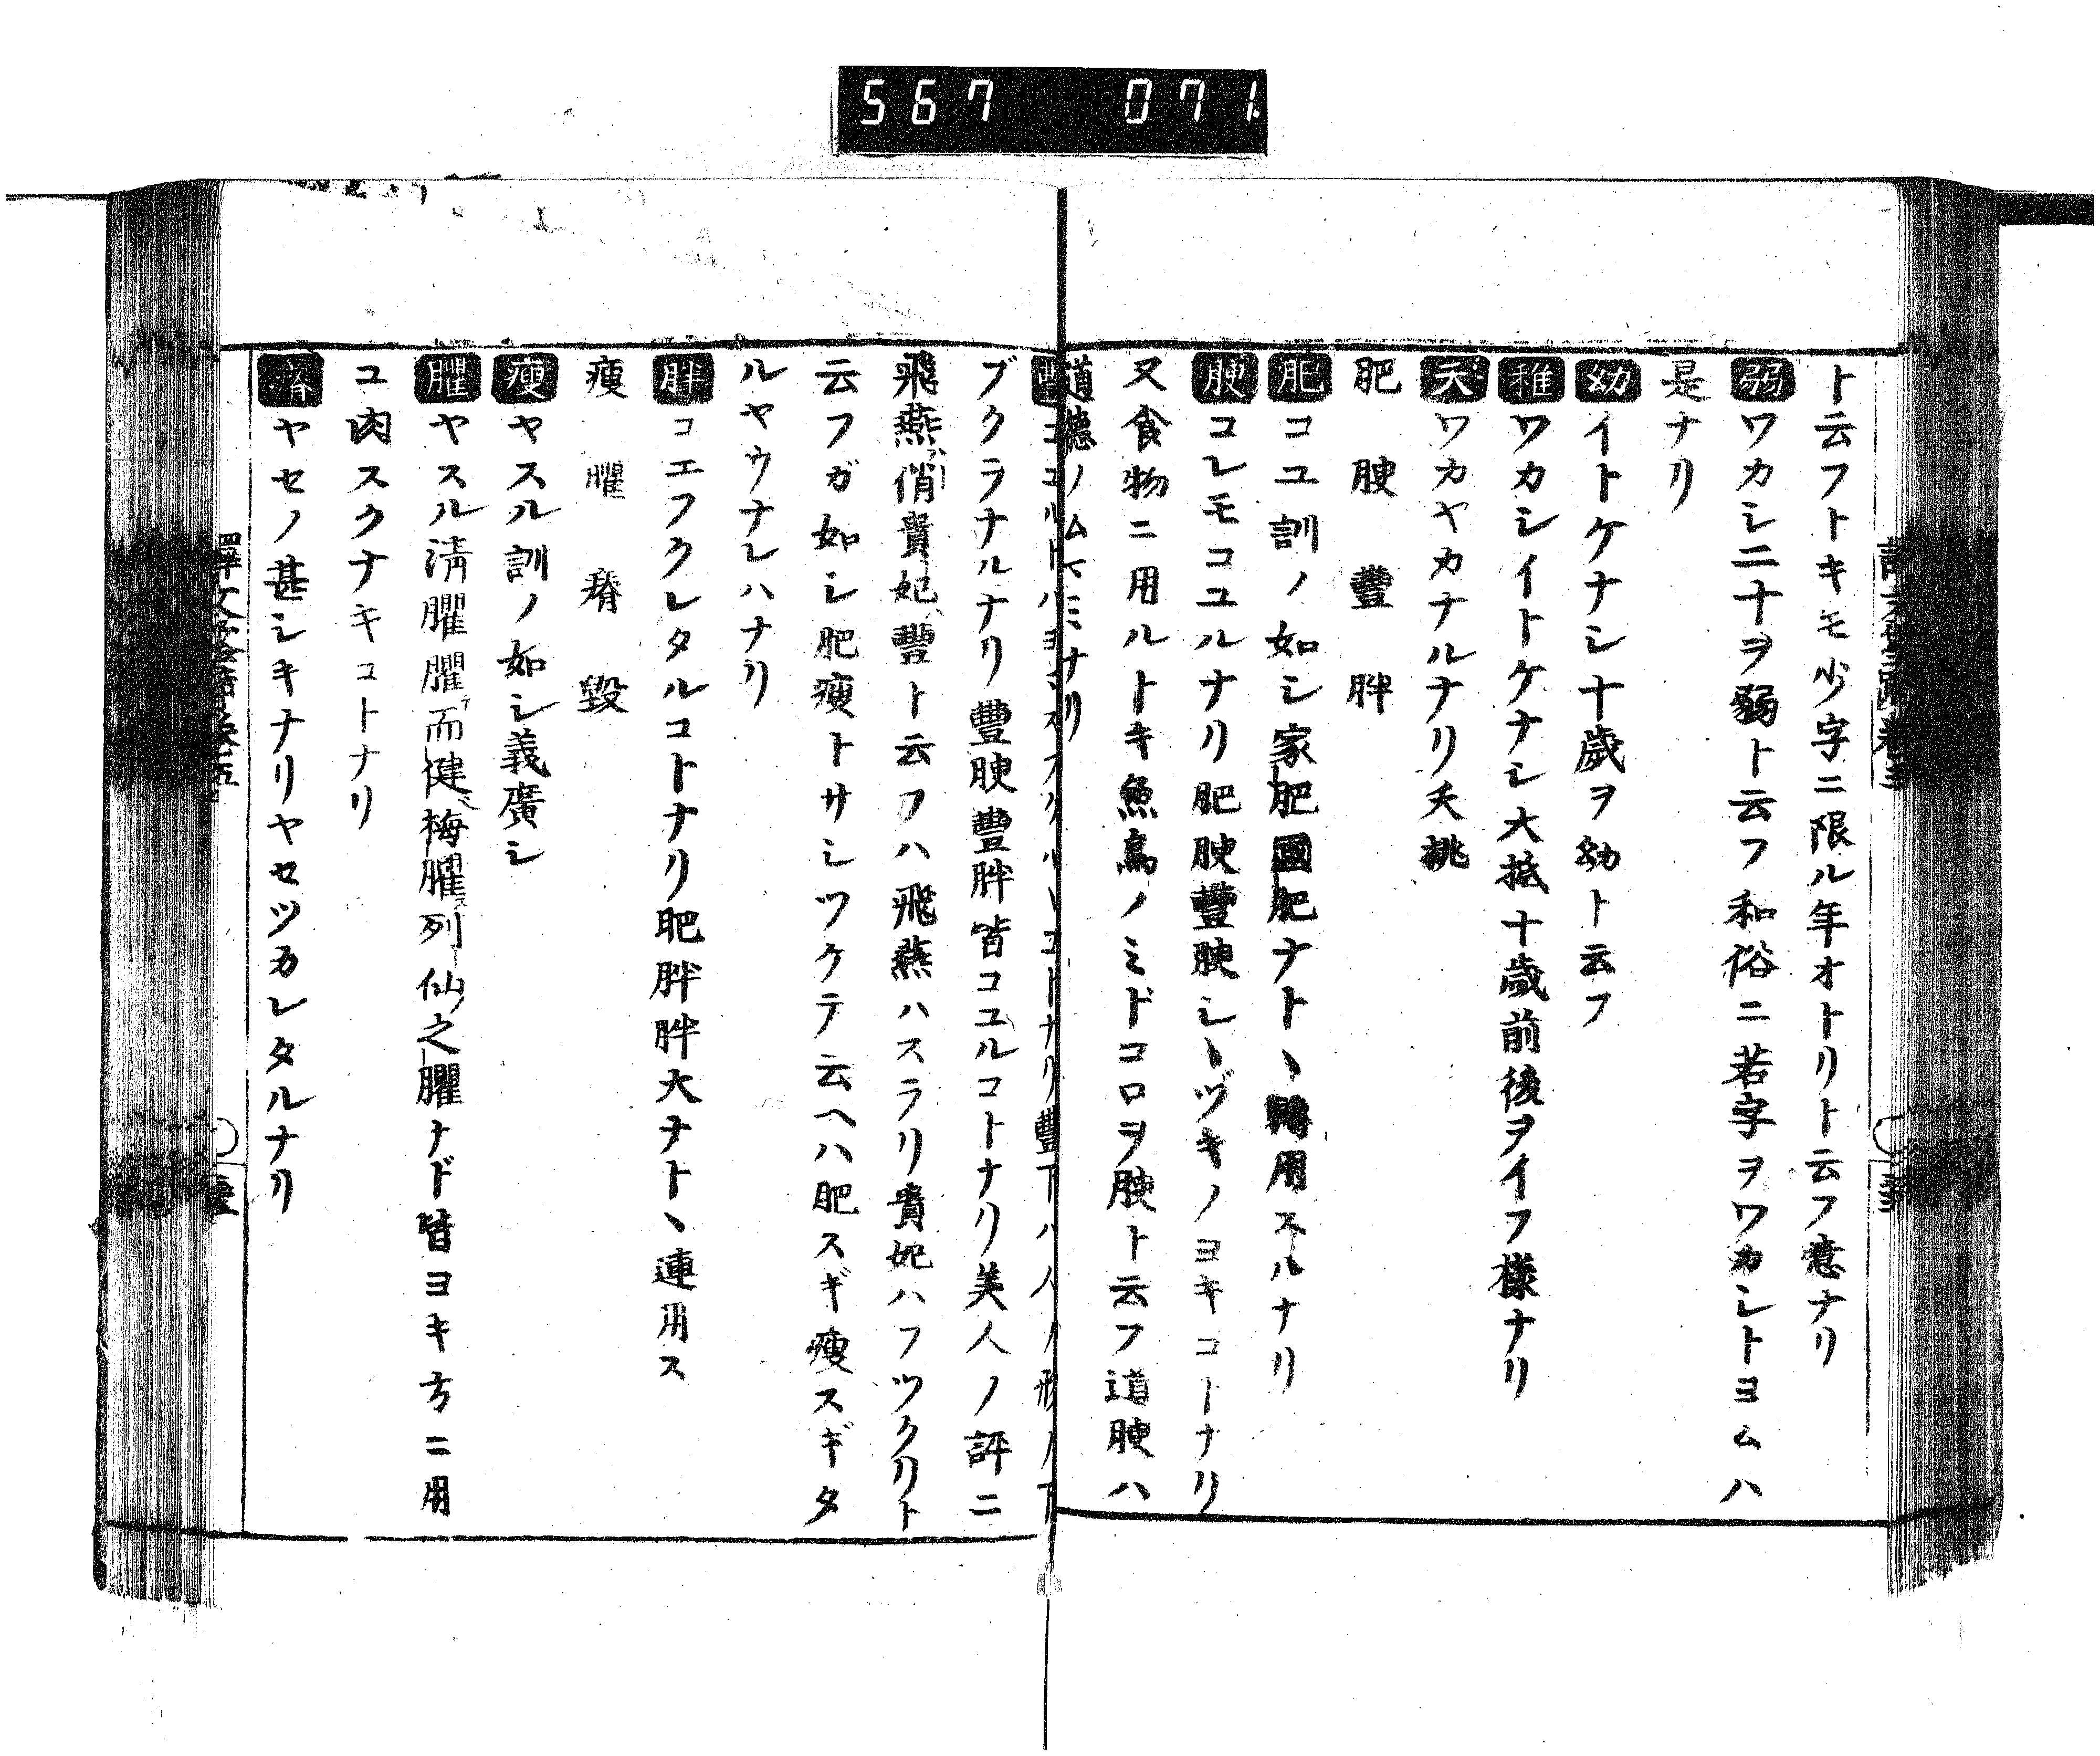 567 071
ト云フトキモ少字ニ限ル年オトリト云フ意ナリ
弱ワカシ二十ヲ弱ト云フ和俗ニ若字ヲワカシトヨムハ
是ナリ
幼イトケナシ十歳ヲ幼ト云フ
稚ワカシイトケナシ大抵十歳前後ヲイフ様ナリ
夭ワカヤカナルナリ夭桃
肥 腴 豐 胖
肥コユ訓ノ如シ家肥國肥ナト丶用スルナリ
腴コレモコユルナリ肥腴豐腴シ丶ヅキノヨキコトナリ
又食物ニ用ルトキ魚鳥ノミドコロヲ腴ト云フ道腴ハ
道德ノムマミナリ
豐コユルトハヨミ
コトナリ豐下ハ人ノ形ノ下
ブクラナルナリ豐腴豐胖皆コユルコトナリ美人ノ評ニ
飛燕俏貴妃豐ト云フハ飛燕ハスラリ貴妃ハフツクリト
云フガ如シ肥瘦トサシツケテ云ヘハ肥スギ瘦スギタ
ルヤウナレハナリ
胖コエフクレタルコトナリ肥胖胖大ナト丶連用ス
瘦 臞 瘠 毀
瘦ヤスル訓ノ如シ義廣シ
臞ヤスル淸臞臞而健梅臞列仙之臞ナド皆ヨキ方ニ用
ユ肉スクナキコトナリ
瘠ヤセノ甚シキナリヤセツカレタルナリ